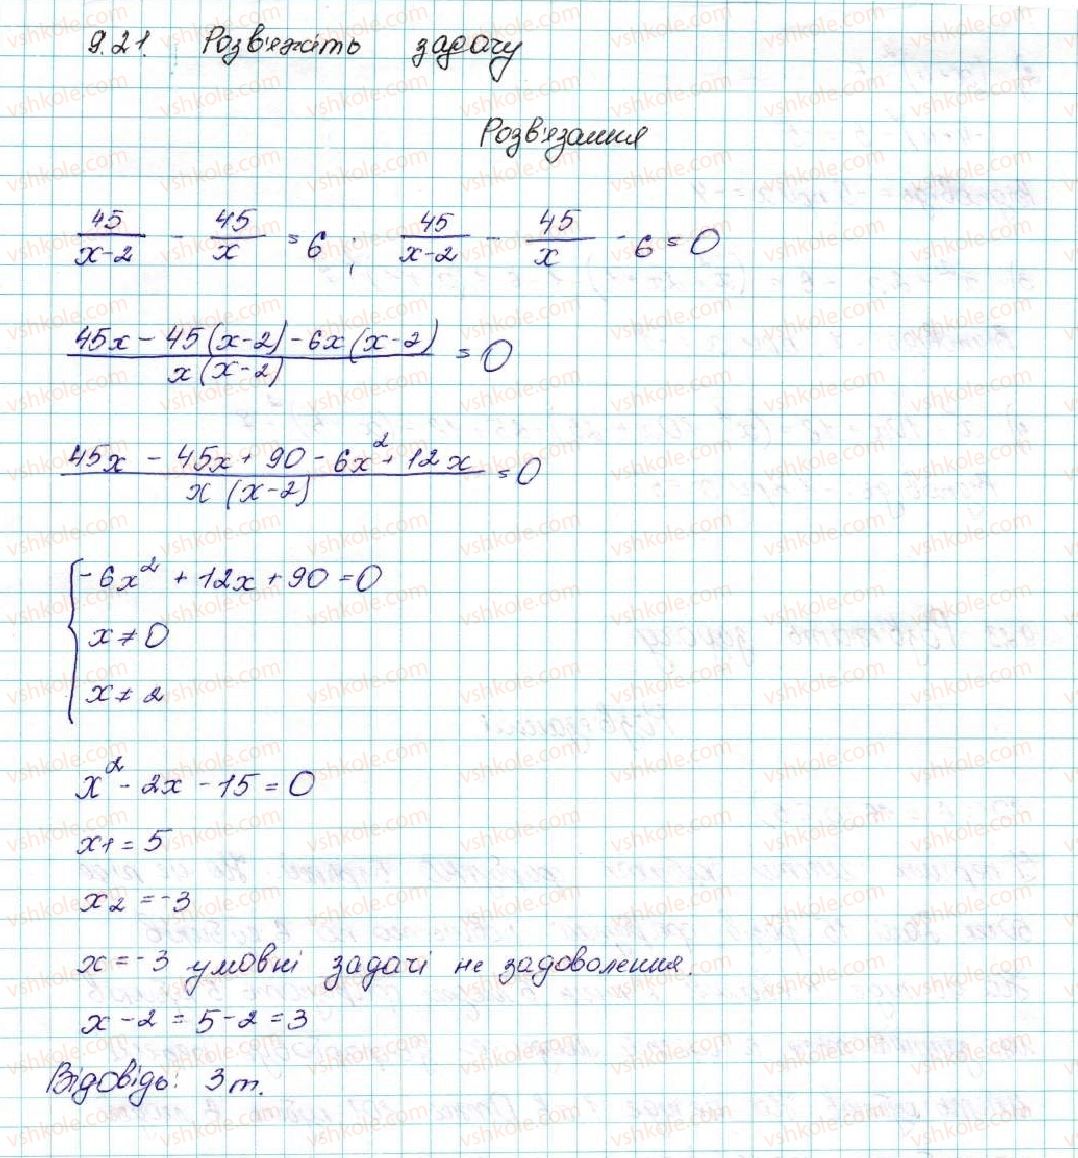 9.21. Розв'яжіть задачу
Розв'язання
45/(x-2) - 45/x = 6 ; 45/(x-2) - 45/x - 6 = 0
(45x - 45(x-2) - 6x(x-2))/(x(x-2)) = 0
(45x - 45x + 90 - 6x² + 12x)/(x(x-2)) = 0
{ -6x² + 12x + 90 = 0
x ≠ 0
x ≠ 2
x² - 2x - 15 = 0
x1 = 5
x2 = -3
x = -3 умовні задачі не задоволення.
x - 2 = 5 - 2 = 3
Відовідь: 3 т.
vshkole.com